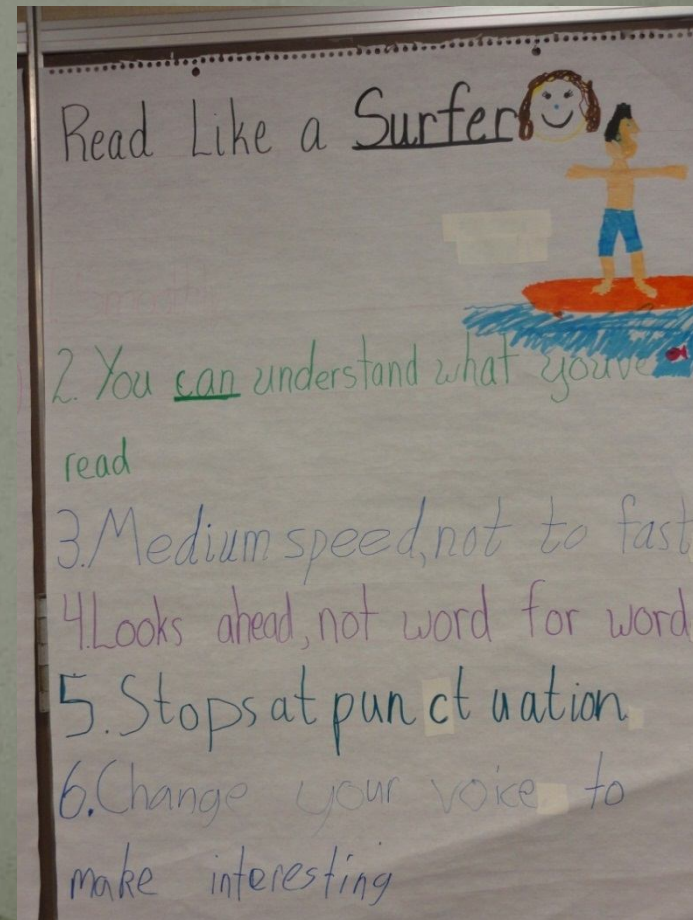 Read Like a Surfer
2. You can understand what youve
read
3. Medium speed, not to fast
4. Looks ahead, not word for word
5. Stops at punctuation
6. Change your voice to
make interesting